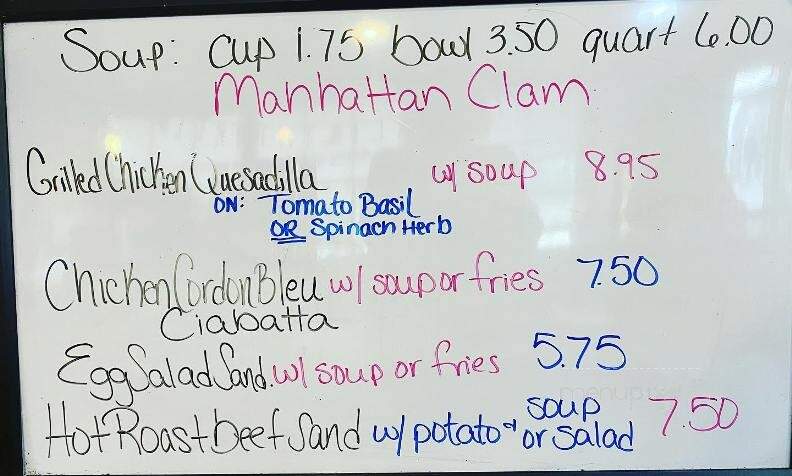 Soup: cup 1.75 bowl 3.50 quart 6.00
Manhattan Clam
Grilled Chicken Quesadilla w/ soup 8.95
ON: Tomato Basil
OR Spinach Herb
Chicken Cordon Bleu w/ soup or fries 7.50
Ciabatta
Egg Salad Sand. w/ soup or fries 5.75
Hot Roast beef Sand w/ potato + soup or salad 7.50